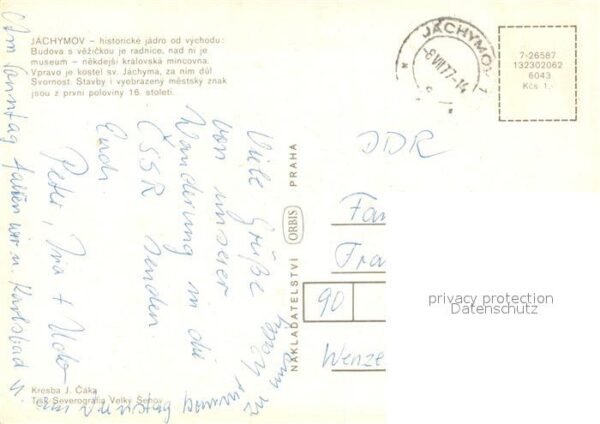 JÁCHYMOV – historické jádro od východu:
Budova s věžičkou je radnice, nad ní je
museum – někdejší královská mincovna.
Vpravo je kostel sv. Jáchyma, za ním důl
Svornost. Stavby i vyobrazený městský znak
jsou z první poloviny 16. století.
JÁCHYMOV
-8.VII.77-14
7-26587
132302062
6043
Kčs 1,-
DDR
Viele Grüße
von unserer
Wanderung in die
ČSSR senden
Euch
Peter, Ina + Udo
Am Sonntag fahren wir n. Karlsbad u.
am Dienstag kommen
wir
zu
NAKLADATELSTVÍ ORBIS PRAHA
Fam
Fra
90
Wenze
privacy protection
Datenschutz
Kresba J. Čáka
Tisk Severografia Velký Šenov